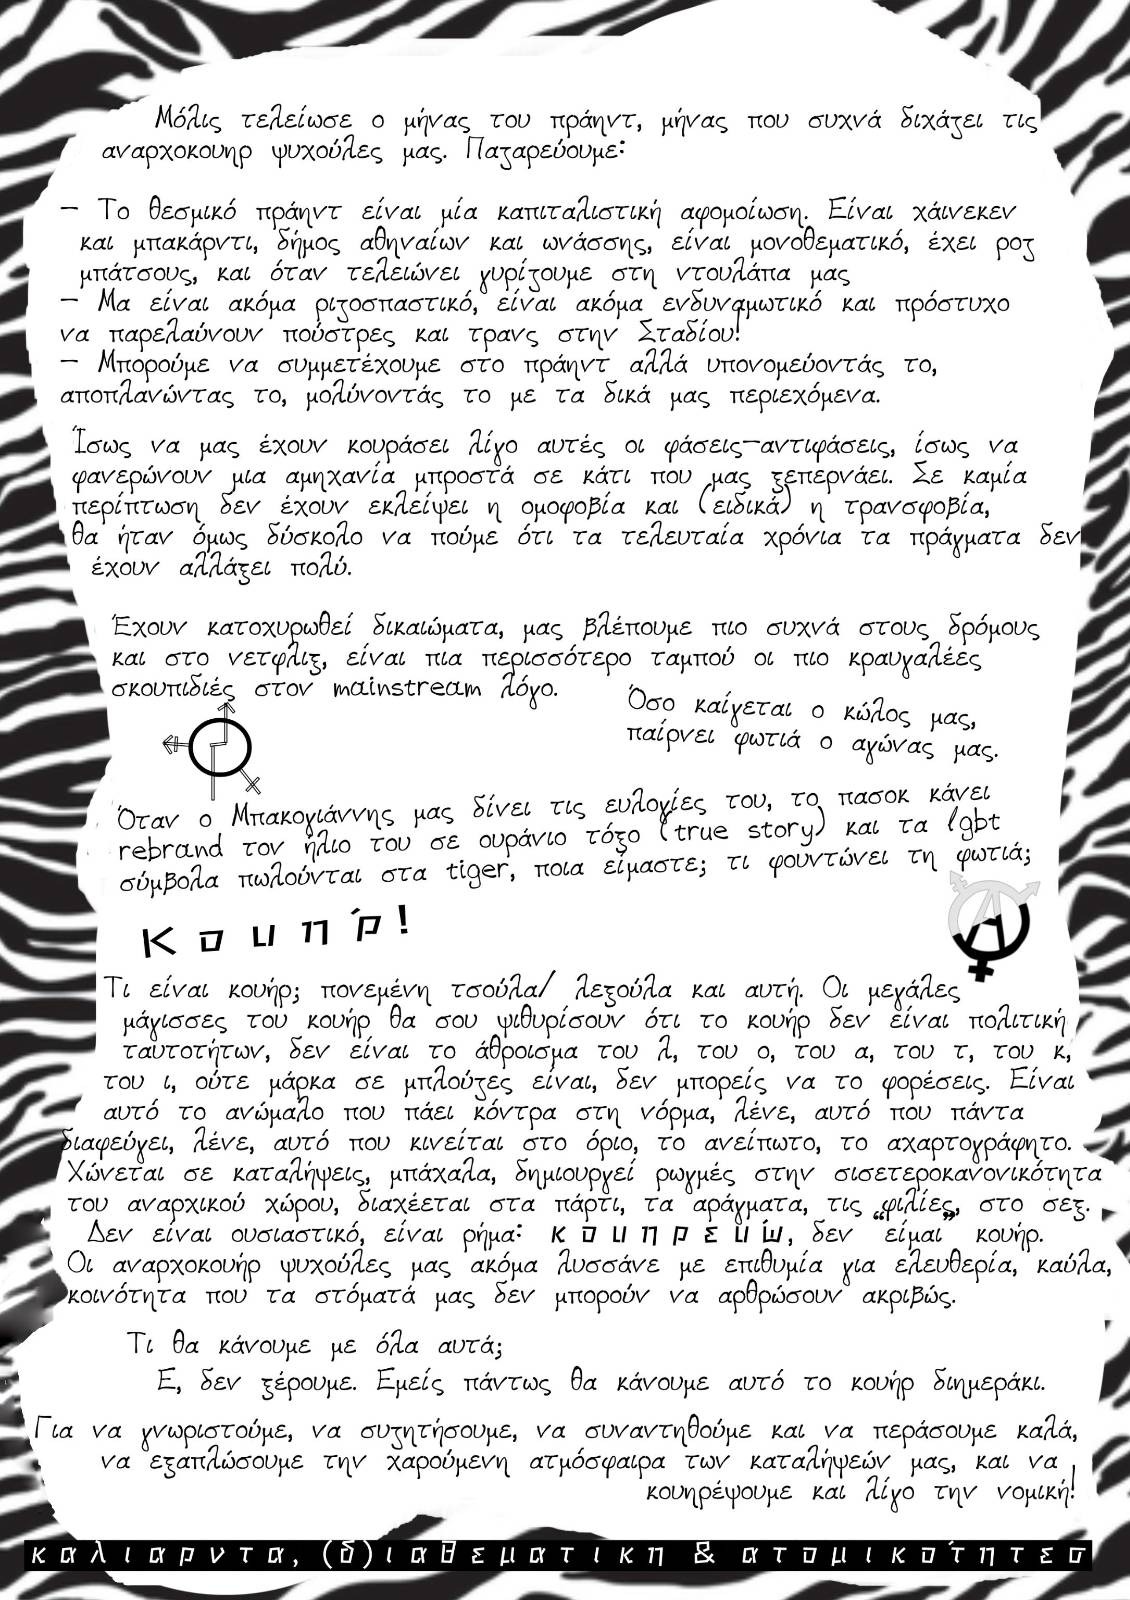 Μόλις τελείωσε ο μήνας του πράηντ, μήνας που συχνά διχάζει τις
αναρχοκουηρ ψυχούλες μας. Παζαρεύουμε:
– Το θεσμικό πράηντ είναι μία καπιταλιστική αφομοίωση. Είναι χάινεκεν
και μπακάρντι, δήμος αθηναίων και ωνάσσης, είναι μονοθεματικό, έχει ροζ
μπάτσους, και όταν τελειώνει γυρίζουμε στη ντουλάπα μας
– Μα είναι ακόμα ριζοσπαστικό, είναι ακόμα ενδυναμωτικό και πρόστυχο
να παρελαύνουν πούστρες και τρανς στην Σταδίου!
– Μπορούμε να συμμετέχουμε στο πράηντ αλλά υπονομεύοντάς το,
αποπλανώντας το, μολύνοντάς το με τα δικά μας περιεχόμενα.
Ίσως να μας έχουν κουράσει λίγο αυτές οι φάσεις-αντιφάσεις, ίσως να
φανερώνουν μια αμηχανία μπροστά σε κάτι που μας ξεπερνάει. Σε καμία
περίπτωση δεν έχουν εκλείψει η ομοφοβία και (ειδικά) η τρανσφοβία,
θα ήταν όμως δύσκολο να πούμε ότι τα τελευταία χρόνια τα πράγματα δεν
έχουν αλλάξει πολύ.
Έχουν κατοχυρωθεί δικαιώματα, μας βλέπουμε πιο συχνά στους δρόμους
και στο νετφλιξ, είναι πια περισσότερο ταμπού οι πιο κραυγαλέες
σκουπιδιές στον mainstream λόγο.
Όσο καίγεται ο κώλος μας,
παίρνει φωτιά ο αγώνας μας.
Όταν ο Μπακογιάννης μας δίνει τις ευλογίες του, το πασοκ κάνει
rebrand τον ήλιο του σε ουράνιο τόξο (true story) και τα lgbt
σύμβολα πωλούνται στα tiger, ποια είμαστε; τι φουντώνει τη φωτιά;
Κουήρ!
Τι είναι κουήρ; πονεμένη τσούλα/ λεξούλα και αυτή. Οι μεγάλες
μάγισσες του κουήρ θα σου ψιθυρίσουν ότι το κουήρ δεν είναι πολιτική
ταυτοτήτων, δεν είναι το άθροισμα του λ, του ο, του α, του τ, του κ,
του ι, ούτε μάρκα σε μπλούζες είναι, δεν μπορείς να το φορέσεις. Είναι
αυτό το ανώμαλο που πάει κόντρα στη νόρμα, λένε, αυτό που πάντα
διαφεύγει, λένε, αυτό που κινείται στο όριο, το ανείπωτο, το αχαρτογράφητο.
Χώνεται σε καταλήψεις, μπάχαλα, δημιουργεί ρωγμές στην σισετεροκανονικότητα
του αναρχικού χώρου, διαχέεται στα πάρτι, τα αράγματα, τις φιλίες, στο σεξ.
Δεν είναι ουσιαστικό, είναι ρήμα: κουηρεύω, δεν “είμαι” κουήρ.
Οι αναρχοκουήρ ψυχούλες μας ακόμα λυσσάνε με επιθυμία για ελευθερία, καύλα,
κοινότητα που τα στόματά μας δεν μπορούν να αρθρώσουν ακριβώς.
Τι θα κάνουμε με όλα αυτά;
Ε, δεν ξέρουμε. Εμείς πάντως θα κάνουμε αυτό το κουήρ διημεράκι.
Για να γνωριστούμε, να συζητήσουμε, να συναντηθούμε και να περάσουμε καλά,
να εξαπλώσουμε την χαρούμενη ατμόσφαιρα των καταλήψεών μας, και να
κουηρέψουμε και λίγο την νομική!
καλιαρντα, (δ)ιαθεματικη & ατομικότητεσ